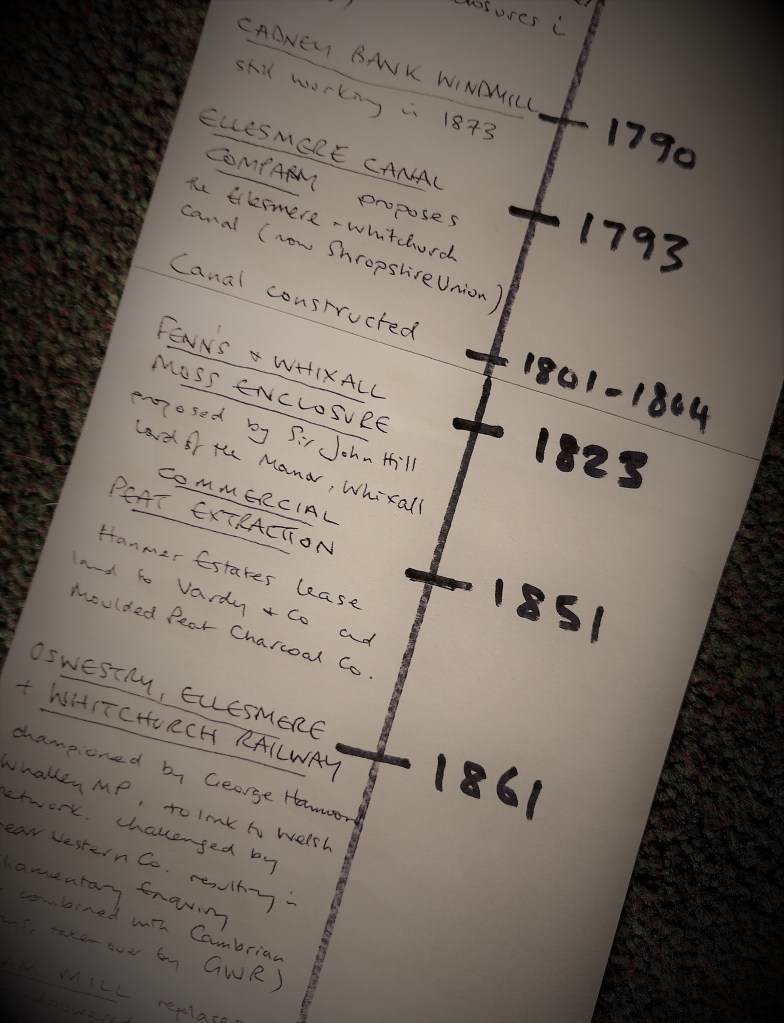 closures i
CADNEY BANK WINDMILL
still working in 1873
1790
ELLESMERE CANAL
COMPANY proposes
the Ellesmere - Whitchurch
canal (now Shropshire Union)
1793
Canal constructed
1801-1804
FENN'S + WHIXALL
MOSS ENCLOSURE
proposed by Sir John Hill
Lord of the Manor, Whixall
1823
COMMERCIAL
PEAT EXTRACTION
Hanmer Estates lease
land to Vardy + Co and
Moulded Peat Charcoal Co.
1851
OSWESTRY, ELLESMERE
+ WHITCHURCH RAILWAY
championed by George Hammond
Whalley MP, to link to Welsh
network. challenged by
eat Western Co. resulting in
liamentary Enquiry
combined with Cambrian
taken over by GWR)
1861
MILL replace